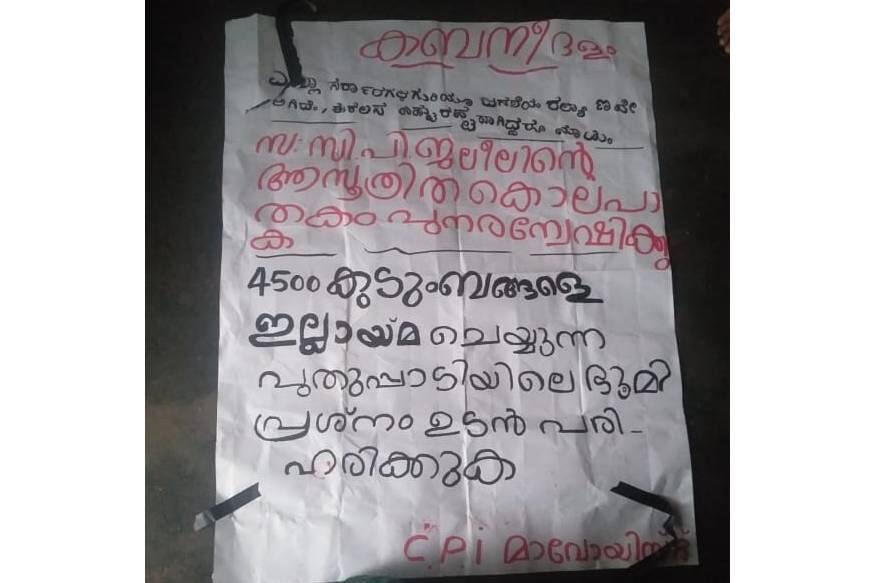 കബനീ ദളം
സ: സി.പി.ജലീലിന്റെ
ആസൂത്രിത കൊലപാ
തകം പുനരന്വേഷിക്കു
ക
4500 കുടുംബങ്ങളെ
ഇല്ലായ്മ ചെയ്യുന്ന
പുതുപ്പാടിയിലെ ഭൂമി
പ്രശ്നം ഉടൻ പരി-
ഹരിക്കുക
C.P.I മാവോയിസ്റ്റ്